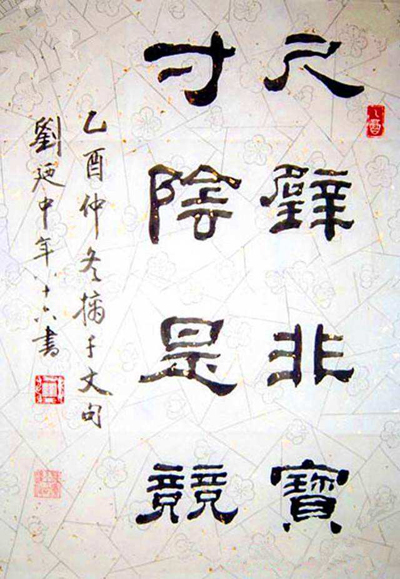 尺璧非寶
寸陰是競
乙酉仲冬摘千文句
劉廼中年八十六書
乙酉